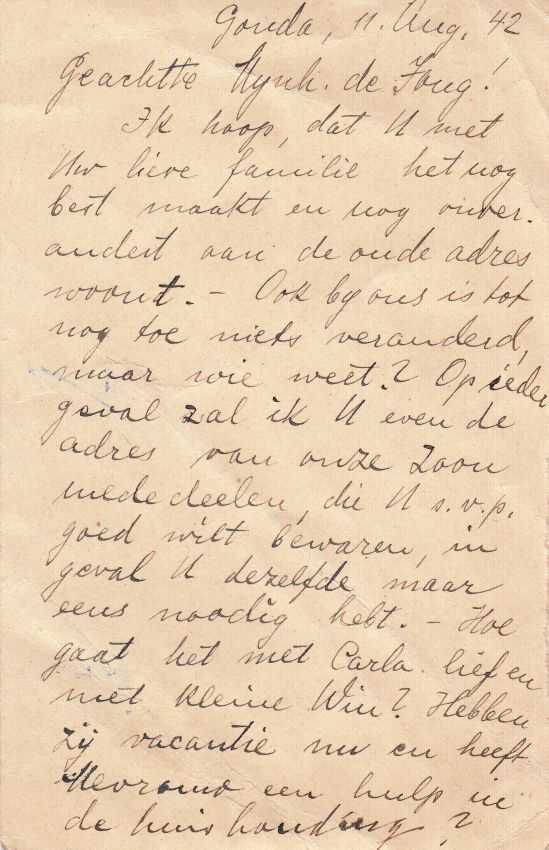 Gouda, 11. Aug. 42
Geachtte Mynh. de Jong!
Ik hoop, dat U met
Uw lieve familie het nog
best maakt en nog onver-
andert aan de oude adres
woont. – Ook by ons is tot
nog toe niets veranderd,
maar wie weet? Op ieder
geval zal ik U even de
adres van onze Zoon
mededeelen, die U s.v.p.
goed wilt bewaren, in
geval U dezelfde maar
eens noodig hebt. – Hoe
gaat het met Carla lief en
met kleine Wim? Hebben
zij vacantie nu en heeft
Mevrouw een hulp in
de huishouding?